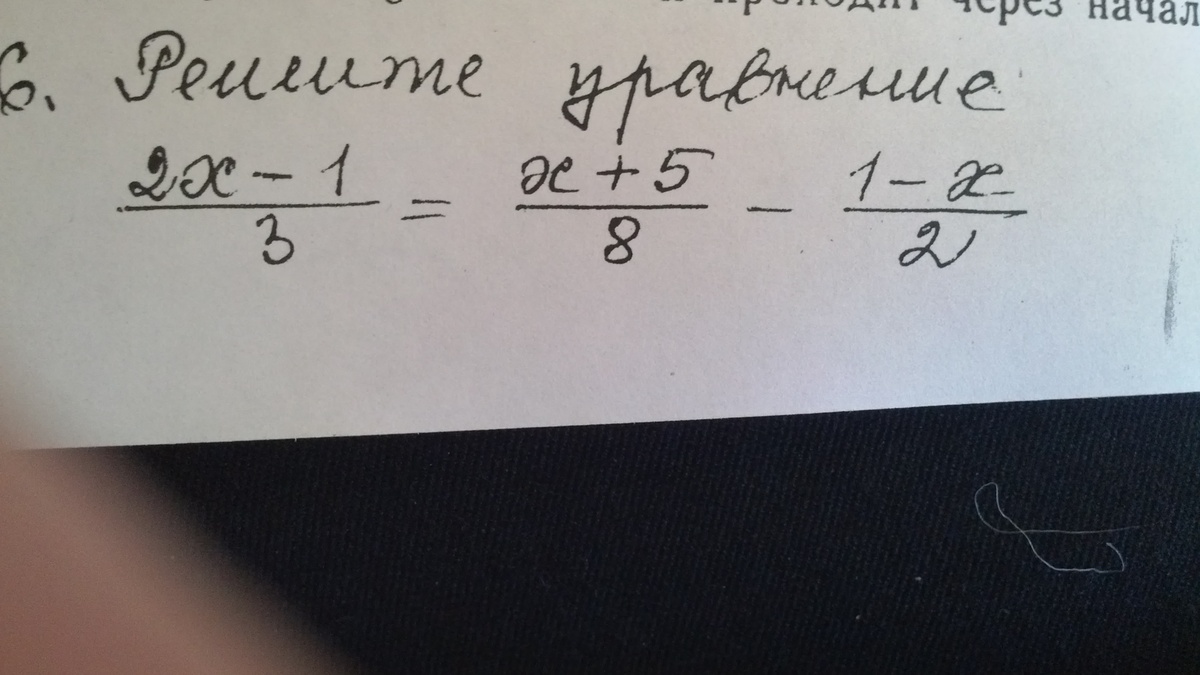 проходит через начал
6. Решите уравнение
2x - 1 / 3 = x + 5 / 8 - 1 - x / 2